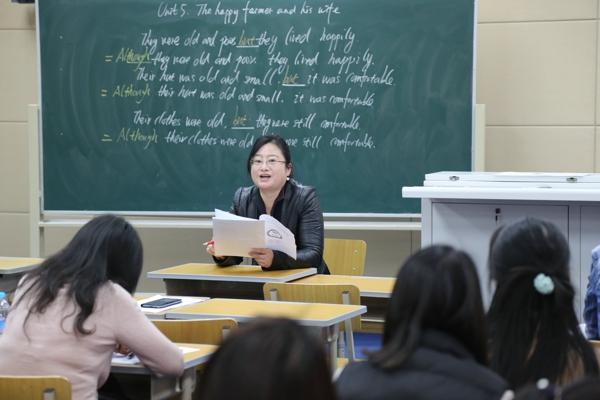 Unit 5. The happy farmer and his wife
They were old and poor but they lived happily
= Although they were old and poor. they lived happily.
Their hut was old and small, but it was comfortable.
= Although their hut was old and small. it was comfortable
Their clothes were old. but they were still comfortable.
= Although their clothes were old were still comfortable.